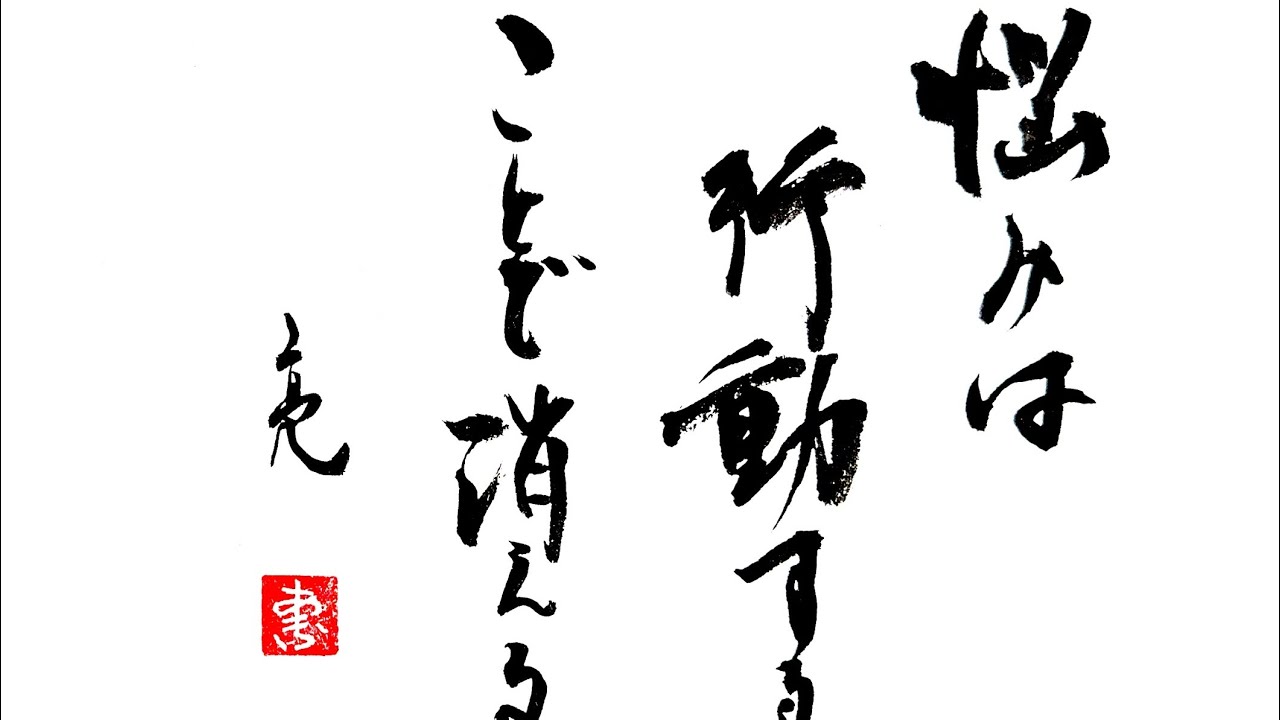 悩みは
行動する
ことで消える
亮